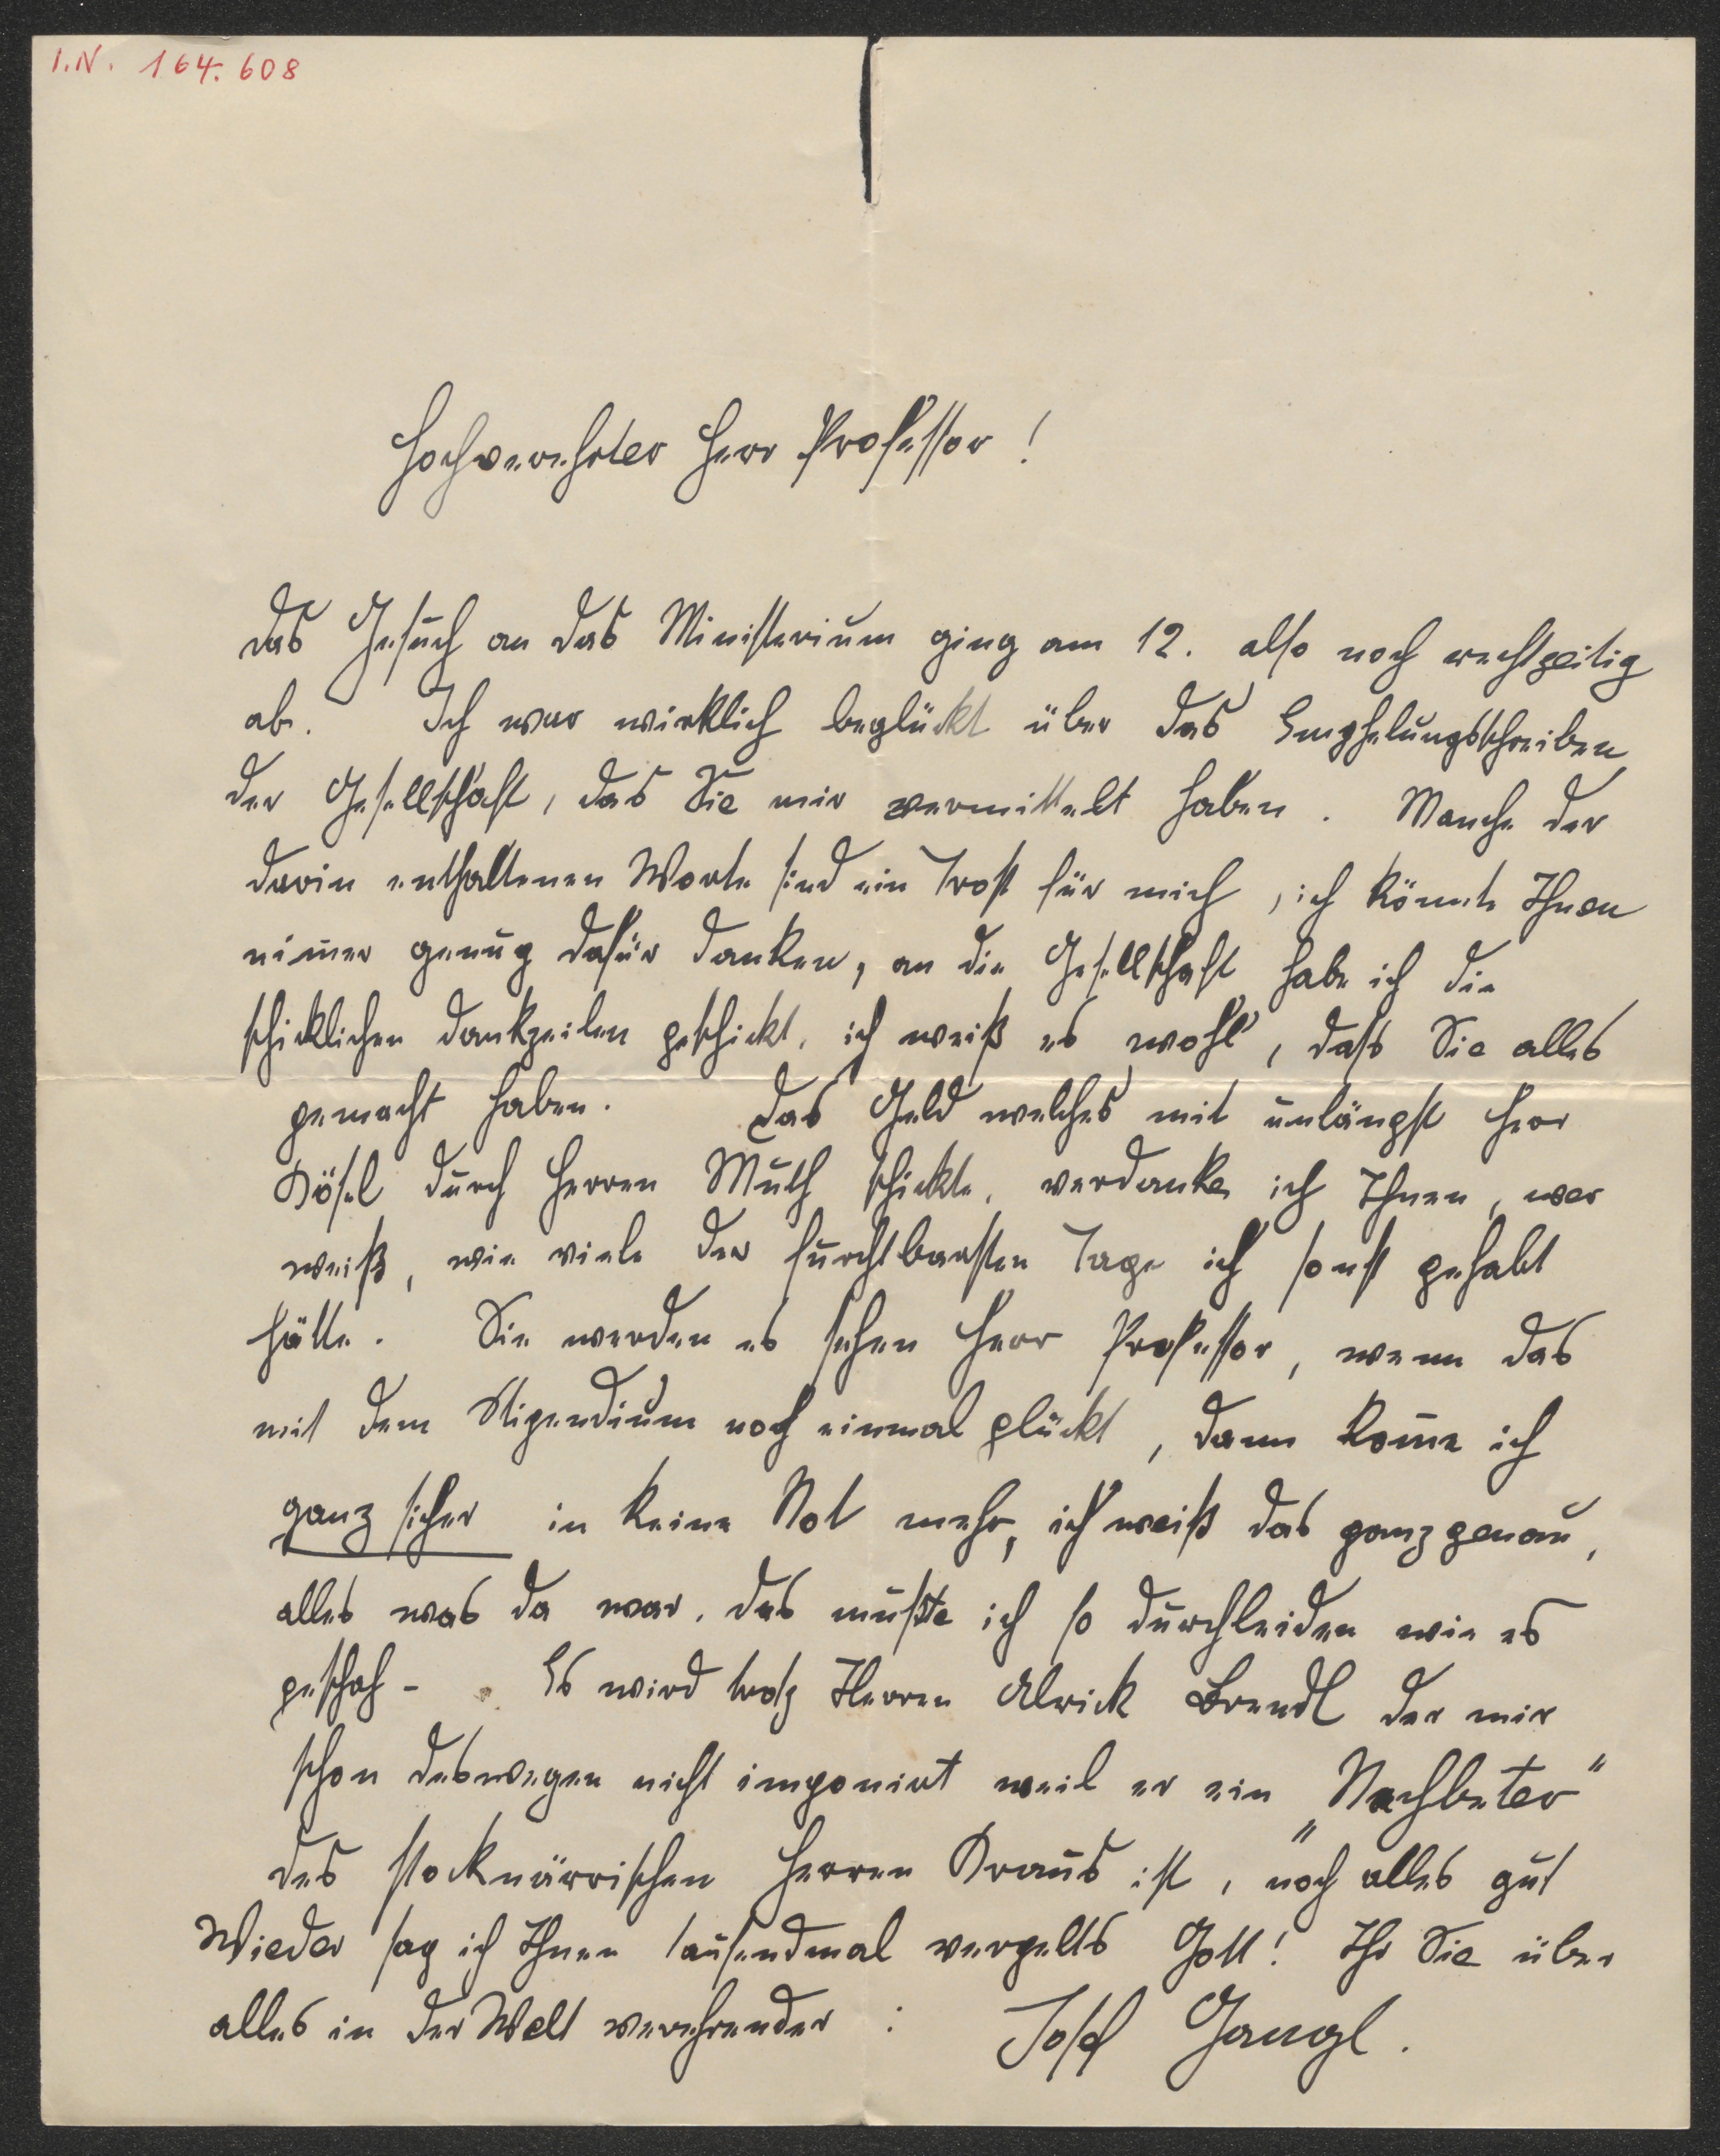 I.N. 164.608
Hochverehrter Herr Professor!
das Gesuch an das Ministerium ging am 12. also noch rechtzeitig
ab. Ich war wirklich beglückt über das Empfelungsschreiben
der Gesellschaft, das Sie mir vermittelt haben. Manche der
darin enthaltenen Worte sind ein Trost für mich, ich könnte Ihnen
nim̅er genug dafür danken, an die Gesellschaft habe ich die
schicklichen Dankzeilen geschickt, ich weiß es wohl, dass Sie alles
gemacht haben. Das Geld welches mit unlängst Herr
Rösel durch Herren Muth schickte, verdanke ich Ihnen, wer
weiß, wie viele der furchtbarsten Tage ich sonst gehabt
hätte. Sie werden es sehen Herr Professor, wenn das
mit dem Stipendium noch einmal glückt, dann kom̅e ich
ganz sicher in keine Not mehr, ich weiß das ganz genau,
alles was da war, das mußte ich so durchleiden wie es
geschah - Es wird trotz Herren Ulrick Brendl der mir
schon deswegen nicht imponirt weil er ein „Nachbeter"
des stocknärrischen Herren Kraus ist, noch alles gut
Wieder sag ich Ihnen tausendmal vergelts Gott! Ihr Sie über
alles in der Welt verehrender : Josef Gangl.